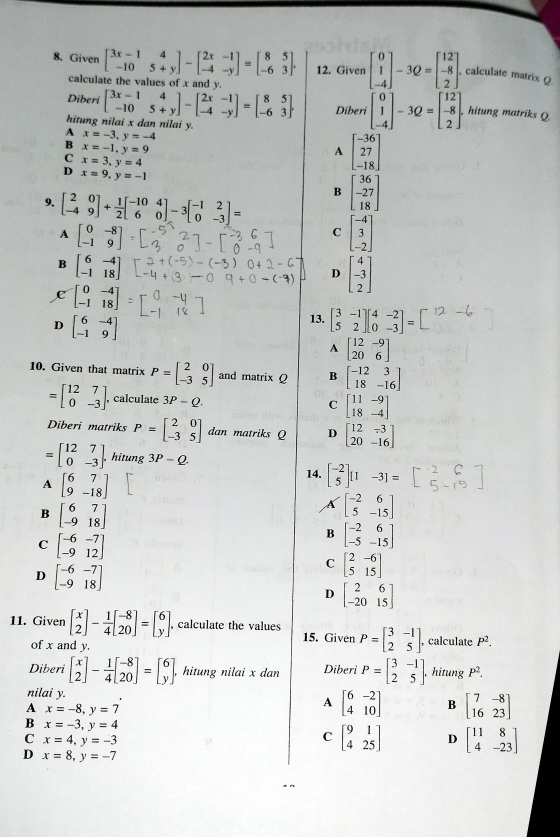 8. Given [3x − 1 4; −10 5 + y] − [2x −1; −4 −y] = [8 5; −6 3],
calculate the values of x and y.
Diberi [3x − 1 4; −10 5 + y] − [2x −1; −4 −y] = [8 5; −6 3],
hitung nilai x dan nilai y.
A x = −3, y = −4
B x = −1, y = 9
C x = 3, y = 4
D x = 9, y = −1
9. [2 0; −4 9] + 1/2[−10 4; 6 0] − 3[−1 2; 0 −3] =
A [0 −8; −1 9] = [-5 2; 3 0] - [-3 6; 0 -9]
B [6 −4; −1 18] [2+(-5)-(-3) 0+2-6; -4+(3)-0 9+0-(-9)]
C [0 −4; −1 18] = [0 -4; -1 18]
D [6 −4; −1 9]
10. Given that matrix P = [2 0; −3 5] and matrix Q
= [12 7; 0 −3], calculate 3P − Q.
Diberi matriks P = [2 0; −3 5] dan matriks Q
= [12 7; 0 −3], hitung 3P − Q.
A [6 7; 9 −18] [
B [6 7; −9 18]
C [−6 −7; −9 12]
D [−6 −7; −9 18]
11. Given [x; 2] − 1/4[−8; 20] = [6; y], calculate the values
of x and y.
Diberi [x; 2] − 1/4[−8; 20] = [6; y], hitung nilai x dan
nilai y.
A x = −8, y = 7
B x = −3, y = 4
C x = 4, y = −3
D x = 8, y = −7
12. Given [0; 1; −4] − 3Q = [12; −8; 2], calculate matrix Q.
Diberi [0; 1; −4] − 3Q = [12; −8; 2], hitung matriks Q.
A [−36; 27; −18]
B [36; −27; 18]
C [−4; 3; −2]
D [4; −3; 2]
13. [3 −1; 5 2][4 −2; 0 −3] = [12 -6
A [12 −9; 20 6]
B [−12 3; 18 −16]
C [11 −9; 18 −4]
D [12 −3; 20 −16]
14. [−2; 5][1 −3] = [-2 6; 5 -15]
A [−2 6; 5 −15]
B [−2 6; −5 −15]
C [2 −6; 5 15]
D [2 6; −20 15]
15. Given P = [3 −1; 2 5], calculate P².
Diberi P = [3 −1; 2 5], hitung P².
A [6 −2; 4 10] B [7 −8; 16 23]
C [9 1; 4 25] D [11 8; 4 −23]